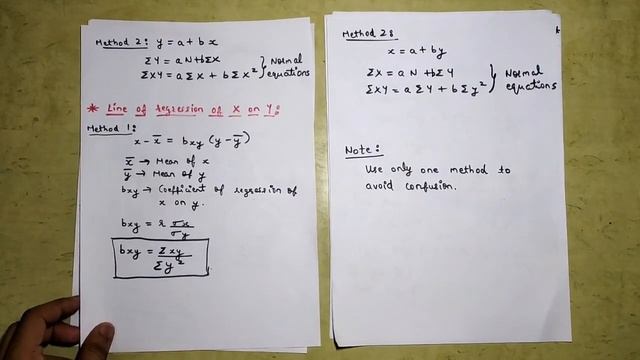 Method 2: y = a + b x
ΣY = a N + bΣX
ΣXY = a ΣX + b ΣX² } Normal equations
* Line of regression of X on Y:
Method 1:
x - x̅ = bxy (y - y̅)
x̅ → Mean of x
y̅ → Mean of y
bxy → Coefficient of regression of
x on y.
bxy = r σx/σy
bxy = Σxy/Σy²
Method 2:
x = a + by
ΣX = a N + bΣY
ΣXY = a ΣY + b Σy² } Normal equations
Note:
Use only one method to
avoid confusion.